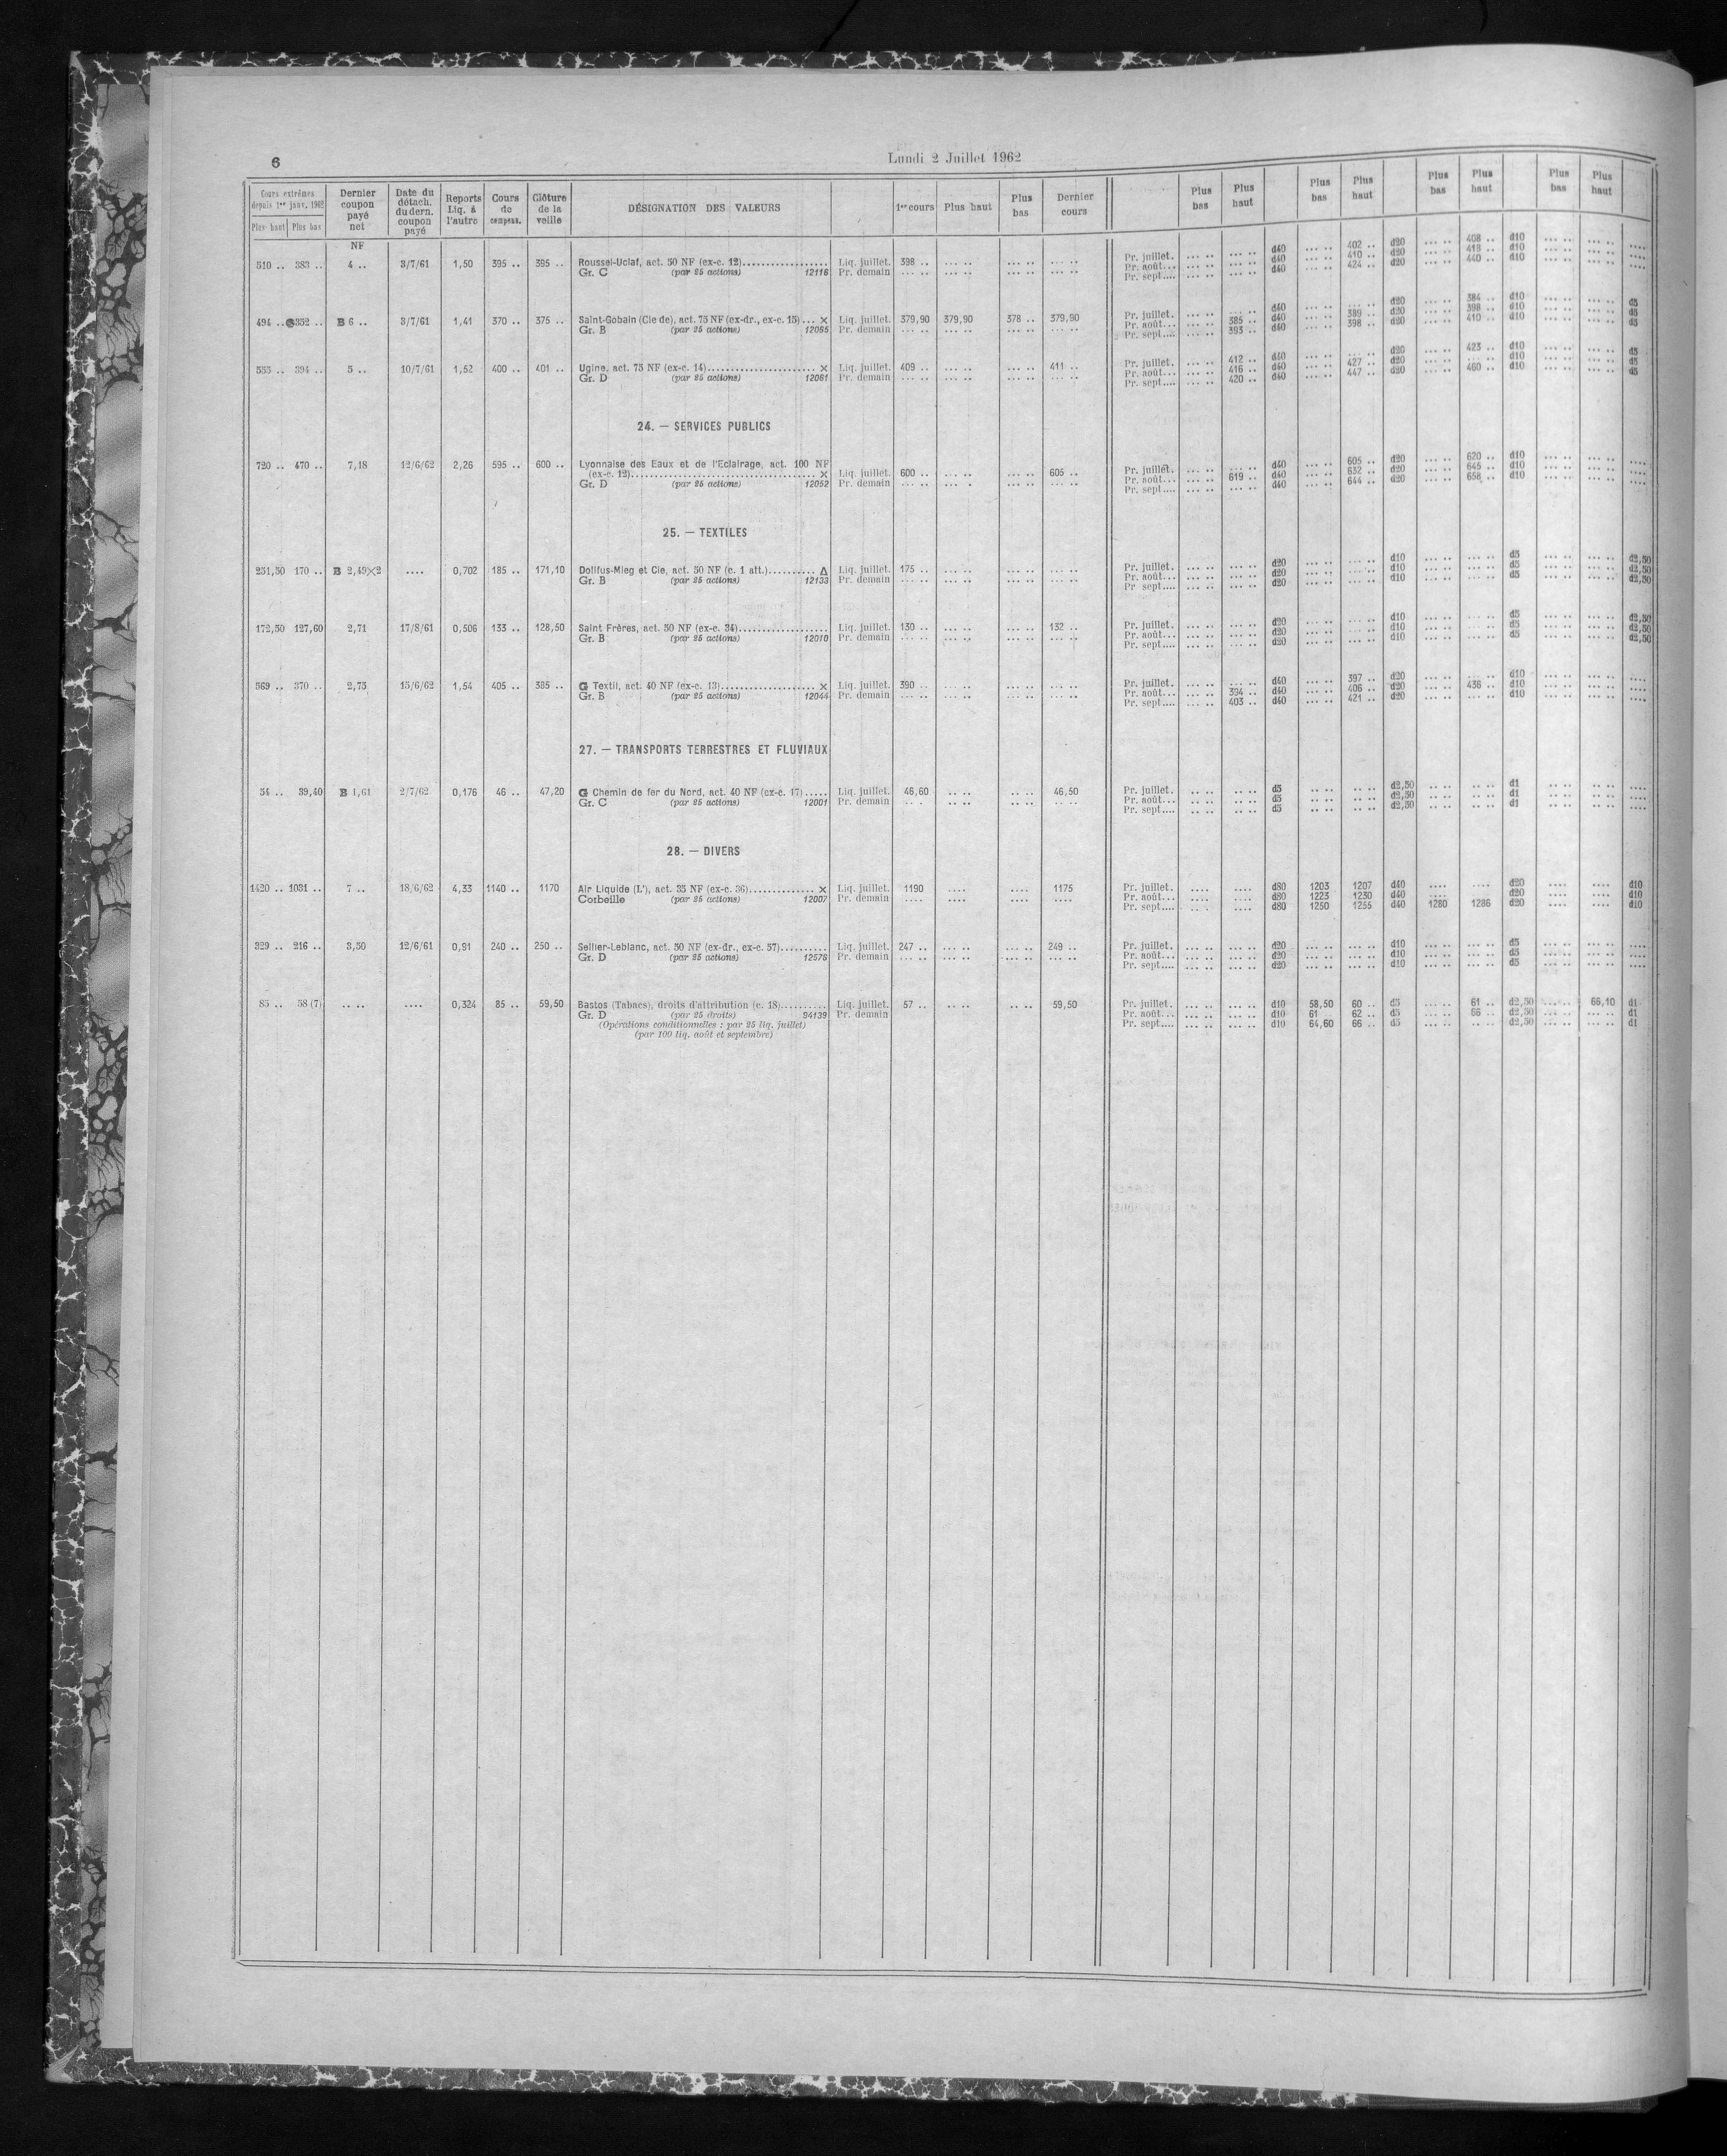 6
Lundi 2 Juillet 1962
Cours extrêmes depuis 1er janv. 1962 | Dernier coupon payé net | Date du détach. du dern. coupon payé | Reports Liq. à l'autre | Cours de compens. | Clôture de la veille | DÉSIGNATION DES VALEURS | 1er cours | Plus haut | Plus bas | Dernier cours | Plus bas | Plus haut | Plus bas | Plus haut | Plus bas | Plus haut | Plus bas | Plus haut
Plus haut | Plus bas
NF
510 .. 383 .. 4 .. 3/7/61 1,50 395 .. 395 .. Roussel-Uclaf, act. 50 NF (ex-c. 12).................. Liq. juillet. 398 .. ... .. ... .. ... .. Pr. juillet. ... .. ... .. d40 ... .. 402 .. d20 ... .. 408 .. d10 ... .. ... .. ....
Gr. C (par 25 actions) 12116 Pr. demain ... .. ... .. ... .. ... .. Pr. août... ... .. ... .. d40 ... .. 410 .. d20 ... .. 418 .. d10 ... .. ... .. ....
Pr. sept.... ... .. ... .. d40 ... .. 424 .. d20 ... .. 440 .. d10 ... .. ... .. ....
494 .. 352 .. B 6 .. 3/7/61 1,41 370 .. 375 .. Saint-Gobain (Cie de), act. 75 NF (ex-dr., ex-c. 15)... X Liq. juillet. 379,90 379,90 378 .. 379,90 Pr. juillet. ... .. ... .. d40 ... .. ... .. d20 ... .. 384 .. d10 ... .. ... .. d5
Gr. B (par 25 actions) 12065 Pr. demain ... .. ... .. ... .. ... .. Pr. août... ... .. 385 .. d40 ... .. 389 .. d20 ... .. 398 .. d10 ... .. ... .. d5
Pr. sept.... ... .. 393 .. d40 ... .. 398 .. d20 ... .. 410 .. d10 ... .. ... .. d5
555 .. 394 .. 5 .. 10/7/61 1,52 400 .. 401 .. Ugine, act. 75 NF (ex-c. 14)........................ X Liq. juillet. 409 .. ... .. ... .. 411 .. Pr. juillet. ... .. 412 .. d40 ... .. ... .. d20 ... .. 423 .. d10 ... .. ... .. d5
Gr. D (par 25 actions) 12061 Pr. demain ... .. ... .. ... .. ... .. Pr. août... ... .. 416 .. d40 ... .. 427 .. d20 ... .. ... .. d10 ... .. ... .. d5
Pr. sept.... ... .. 420 .. d40 ... .. 447 .. d20 ... .. 460 .. d10 ... .. ... .. d5
24. — SERVICES PUBLICS
720 .. 470 .. 7,18 12/6/62 2,26 595 .. 600 .. Lyonnaise des Eaux et de l'Eclairage, act. 100 NF
(ex-c. 12)........................................ X Liq. juillet. 600 .. ... .. ... .. 605 .. Pr. juillet. ... .. ... .. d40 ... .. 605 .. d20 ... .. 620 .. d10 ... .. ... .. ....
Gr. D (par 25 actions) 12052 Pr. demain ... .. ... . ... .. ... .. Pr. août... ... .. 619 .. d40 ... .. 632 .. d20 ... .. 645 .. d10 ... .. ... .. ....
Pr. sept.... ... .. ... .. d40 ... .. 644 .. d20 ... .. 658 .. d10 ... .. ... .. ....
25. — TEXTILES
251,50 170 .. B 2,49X2 .... 0,702 185 .. 171,10 Dollfus-Mieg et Cie, act. 50 NF (c. 1 att.).......... Δ Liq. juillet. 175 .. ... .. ... .. ... .. Pr. juillet. ... .. ... .. d20 ... .. ... .. d10 ... .. ... .. d5 ... .. ... .. d2,50
Gr. B (par 25 actions) 12133 Pr. demain ... .. ... .. ... .. ... .. Pr. août... ... .. ... .. d20 ... .. ... .. d10 ... .. ... .. d5 ... .. ... .. d2,50
Pr sept.... ... .. ... .. d20 ... .. ... .. d10 ... .. ... .. d5 ... .. ... .. d2,50
172,50 127,60 2,71 17/8/61 0,506 133 .. 128,50 Saint Frères, act. 50 NF (ex-c. 34).................. Liq. juillet. 130 .. ... .. ... .. 132 .. Pr. juillet. ... .. ... .. d20 ... .. ... .. d10 ... .. ... .. d5 ... .. ... .. d2,50
Gr. B (par 25 actions) 12010 Pr. demain ... .. ... .. ... .. ... .. Pr. août... ... .. ... .. d20 ... .. ... .. d10 ... .. ... .. d5 ... .. ... .. d2,50
Pr. sept.... ... .. ... .. d20 ... .. ... .. d10 ... .. ... .. d5 ... .. ... .. d2,50
569 .. 370 .. 2,75 15/6/62 1,54 405 .. 385 .. G Textil, act. 40 NF (ex-c. 13).................... X Liq. juillet. 390 .. ... .. ... .. ... .. Pr. juillet. ... .. ... .. d40 ... .. 397 .. d20 ... .. ... .. d10 ... .. ... .. ....
Gr. B (par 25 actions) 12044 Pr. demain ... .. ... .. ... .. ... .. Pr. août... ... .. 394 .. d40 ... .. 406 .. d20 ... .. 436 .. d10 ... .. ... .. ....
Pr. sept.... ... .. 403 .. d40 ... .. 421 .. d20 ... .. ... .. d10 ... .. ... .. ....
27. — TRANSPORTS TERRESTRES ET FLUVIAUX
54 .. 39,40 B 1,61 2/7/62 0,176 46 .. 47,20 G Chemin de fer du Nord, act. 40 NF (ex-c. 17)..... Liq. juillet. 46,60 .. .. .. .. 46,50 Pr. juillet. .. .. .. .. d5 .. .. .. .. d2,50 .. .. .. .. d1 .. .. .. .. ....
Gr. C (par 25 actions) 12001 Pr. demain .. . .. .. .. .. .. .. Pr. août... .. .. .. .. d5 .. .. .. .. d2,50 .. .. .. .. d1 .. .. .. .. ....
Pr. sept.... .. .. .. .. d5 .. .. .. .. d2,50 .. .. .. .. d1 .. .. .. .. ....
28. — DIVERS
1420 .. 1031 .. 7 .. 18/6/62 4,33 1140 .. 1170 Air Liquide (L'), act. 35 NF (ex-c. 36).............. X Liq. juillet. 1190 .... .... 1175 Pr. juillet. .... .... d80 1203 1207 d40 .... .... d20 .... .... d10
Corbeille (par 25 actions) 12007 Pr. demain .... .... .... .... Pr. août... .... .... d80 1223 1230 d40 .... .... d20 .... .... d10
Pr. sept.... .... .... d80 1250 1255 d40 1280 1286 d20 .... .... d10
329 .. 216 .. 3,50 12/6/61 0,91 240 .. 250 .. Sellier-Leblanc, act. 50 NF (ex-dr., ex-c. 57).......... Liq. juillet. 247 .. ... .. ... .. 249 .. Pr. juillet. ... .. ... .. d20 ... .. ... .. d10 ... .. ... .. d5 ... .. ... .. ....
Gr. D (par 25 actions) 12576 Pr. demain ... .. ... .. ... .. ... .. Pr. août... ... .. ... .. d20 ... .. ... .. d10 ... .. ... .. d5 ... .. ... .. ....
Pr. sept.... ... .. ... .. d20 ... .. ... .. d10 ... .. ... .. d5 ... .. ... .. ....
85 .. 58 (7) .. .. .... 0,324 85 .. 59,50 Bastos (Tabacs), droits d'attribution (c. 18).......... Liq. juillet. 57 .. .. .. .. .. 59,50 Pr. juillet. ... .. ... .. d10 58,50 60 .. d5 ... .. 61 .. d2,50 ... .. 66,10 d1
Gr. D (par 25 droits) 94139 Pr. demain Pr. août... ... .. ... .. d10 61 62 .. d5 ... .. 66 .. d2,50 ... .. ... .. d1
(Opérations conditionnelles : par 25 liq. juillet) Pr. sept.... ... .. ... .. d10 64,60 66 .. d5 ... .. .. .. d2,50 ... .. ... .. d1
(par 100 liq. août et septembre)